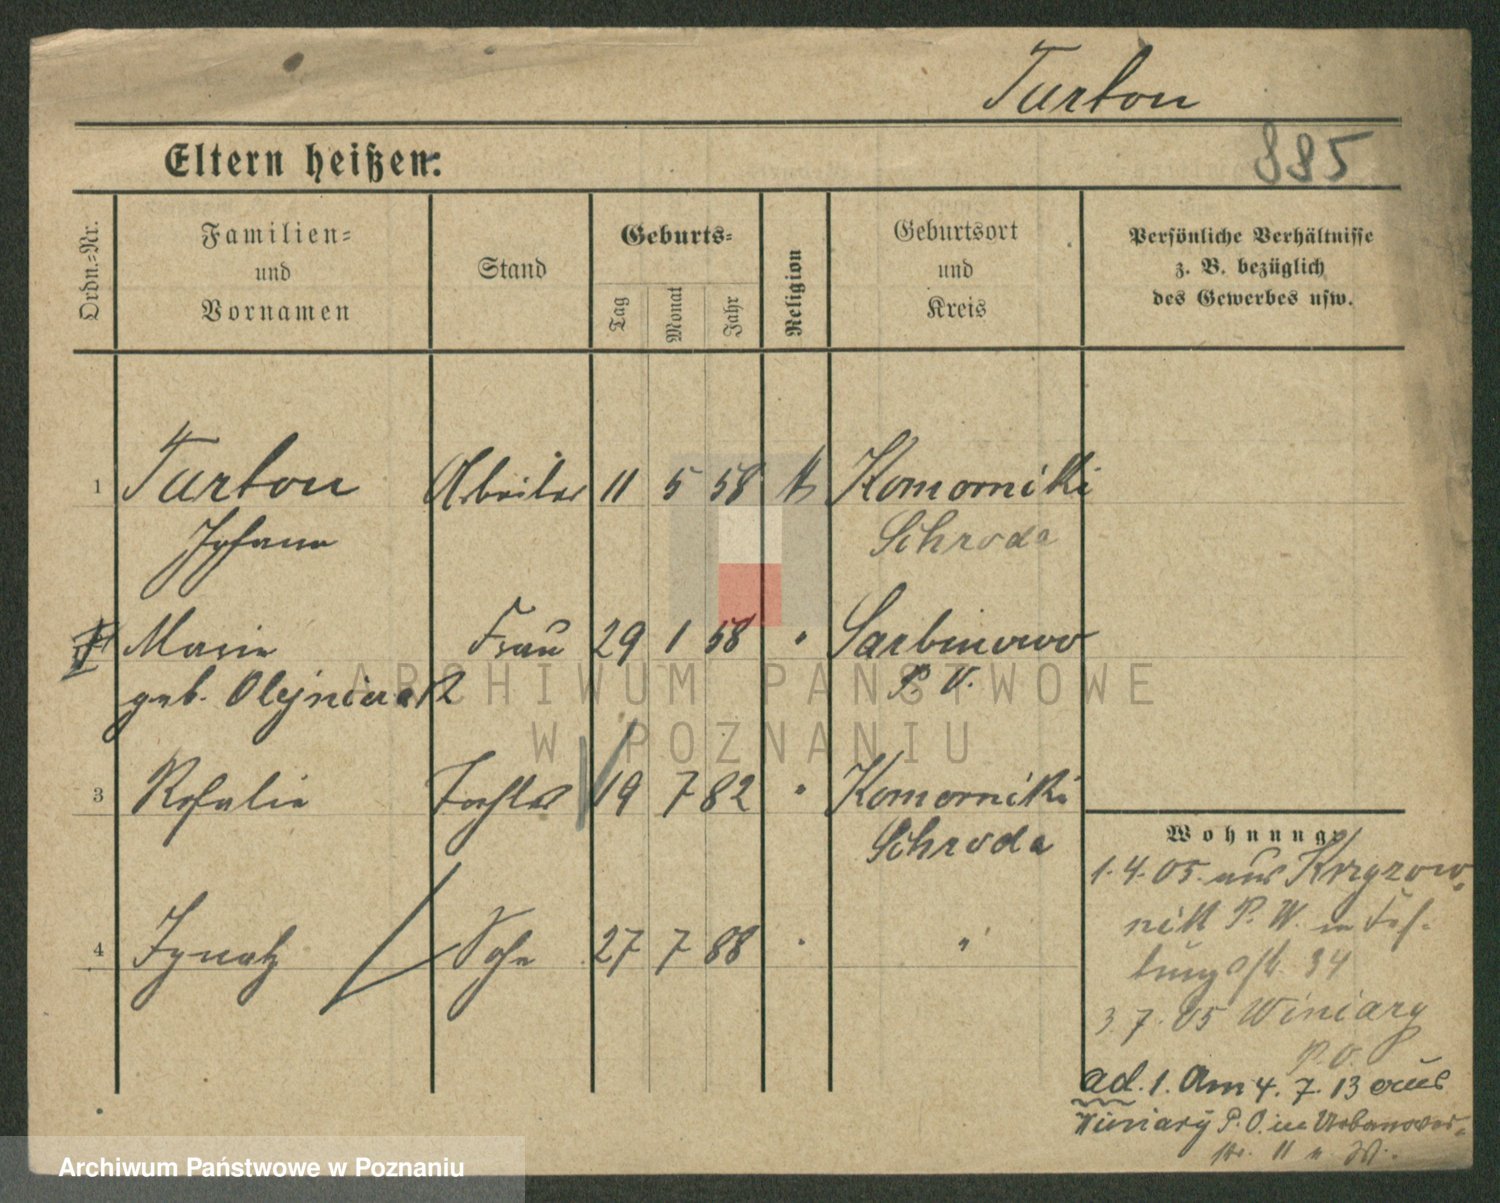 Turton
Eltern heißen:
885
Ordn.-Nr.
Familien-
und
Vornamen
Stand
Geburts-
Tag
Monat
Jahr
Religion
Geburtsort
und
Kreis
Persönliche Verhältnisse
z. B. bezüglich
des Gewerbes usw.
1 Turton Arbeiter 11 5 58 k Komorniki
Johann Schroda
Marie Frau 29 1 58 " Sarbinowo
geb. Olejniczak P. O.
3 Rosalie Tochter 19 7 82 " Komorniki
Schroda
4 Ignatz Sohn 27 7 88 " "
Wohnung
1. 4. 05. aus Krzyzow-
nik P. W. in Fes-
tungsstr. 34
3. 7. 05 Winiary
P. O.
ad. 1. Am 4. 7. 13 aus
Winiary P. O. in Urbanower-
str. 11 u. W.
ARCHIWUM PAŃSTWOWE
W POZNANIU
Archiwum Państwowe w Poznaniu